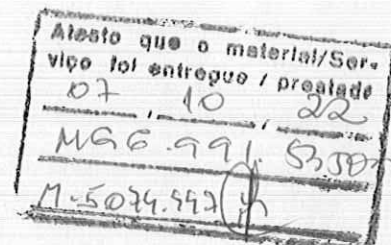 Atesto que o material/Ser-
viço foi entregue / prestado
07 / 10 / 22
M-5074.997